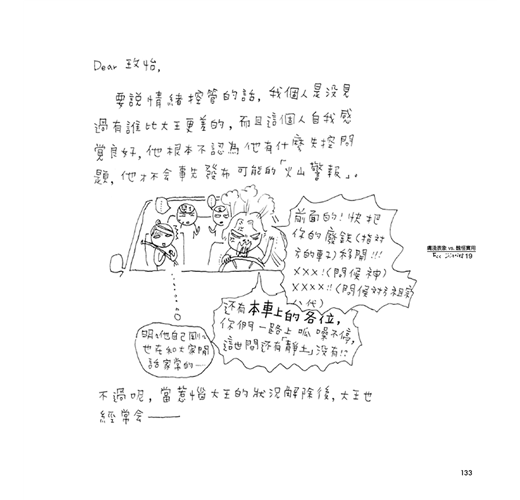 Dear 玫怡,
要說情緒控管的話, 我個人是沒見
過有誰比大王更差的, 而且這個人自我感
覺良好, 他根本不認為他有什麼失控問
題, 他才不會事先發布可能的「火山警報」。
前面的! 快把
你的廢鐵(指對
方的車子)移開!!!
XXX!(問候神)
XXXX!!(問候對方祖宗
八代)
还有本車上的各位,
你們一路上呱噪不停,
這世間还有「靜土」沒有!?
明明他自己剛剛
也在和大家閒
話家常的…
不過呢, 當惹惱大王的狀況解除後, 大王也
經常会——
vs.
19
133